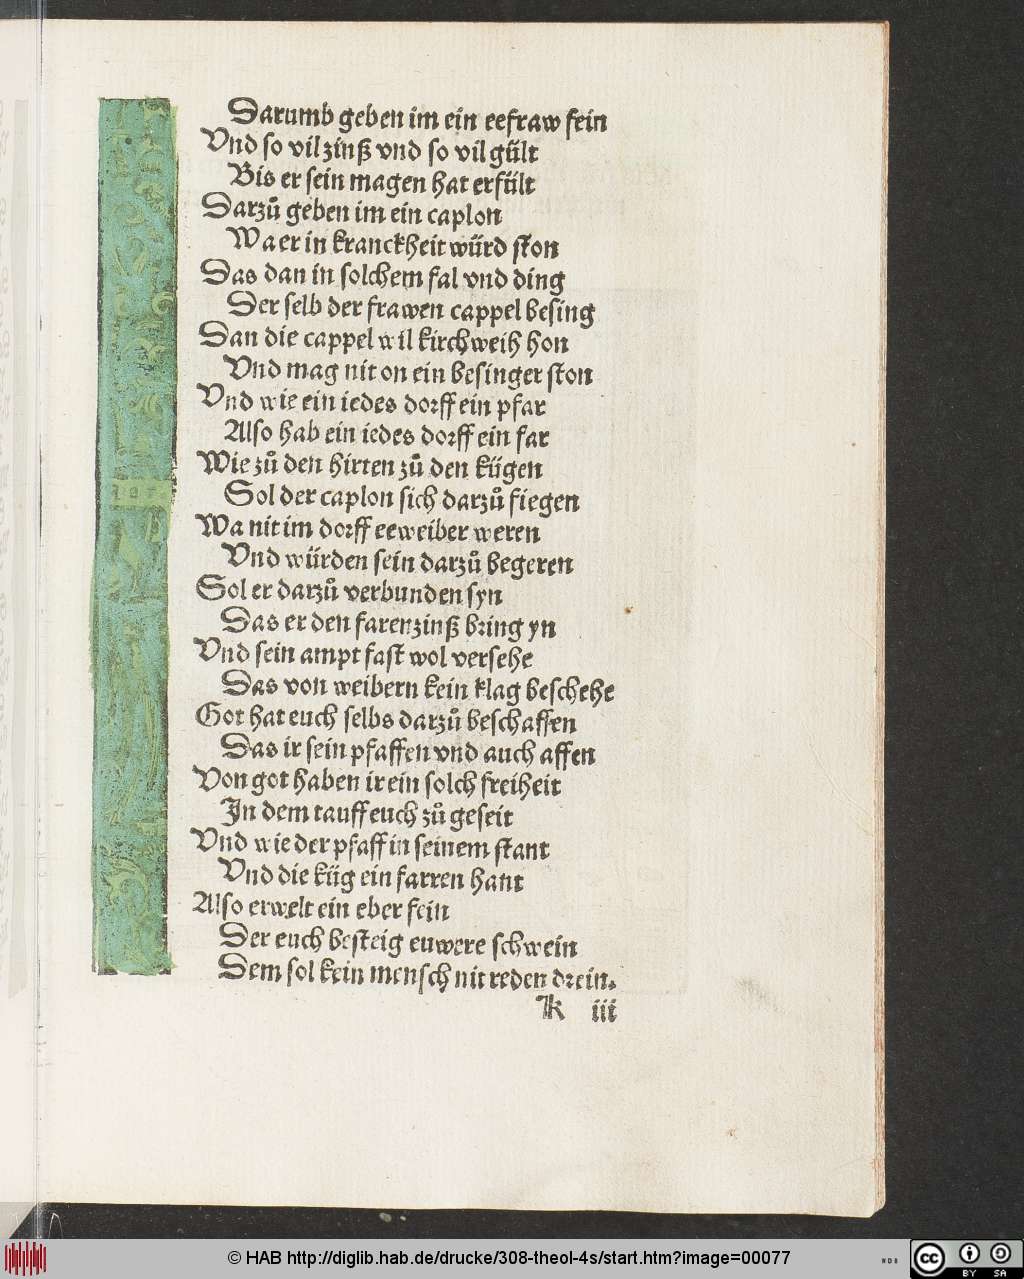 Darumb geben im ein eefraw fein
Vnd so vil zinß vnd so vil gült
Bis er sein magen hat erfült
Darzů geben im ein caplon
Wa er in kranckheit würd ston
Das dan in solchem fal vnd ding
Der selb der frawen cappel besing
Dan die cappel wil kirchweih hon
Vnd mag nit on ein besinger ston
Vnd wie ein iedes dorff ein pfar
Also hab ein iedes dorff ein far
Wie zů den hirten zů den kügen
Sol der caplon sich darzů fiegen
Wa nit im dorff eeweiber weren
Vnd würden sein darzů begeren
Sol er darzů verbunden syn
Das er den farenzinß bring yn
Vnd sein ampt fast wol versehe
Das von weibern kein klag beschehe
Got hat euch selbs darzů beschaffen
Das ir sein pfaffen vnd auch affen
Von got haben ir ein solch freiheit
In dem tauff euch zů geseit
Vnd wie der pfaff in seinem stant
Vnd die küg ein farren hant
Also erwelt ein eber fein
Der euch besteig euwere schwein
Dem sol kein mensch nit reden drein.
k iii
© HAB http://diglib.hab.de/drucke/308-theol-4s/start.htm?image=00077
WDB
cc BY SA